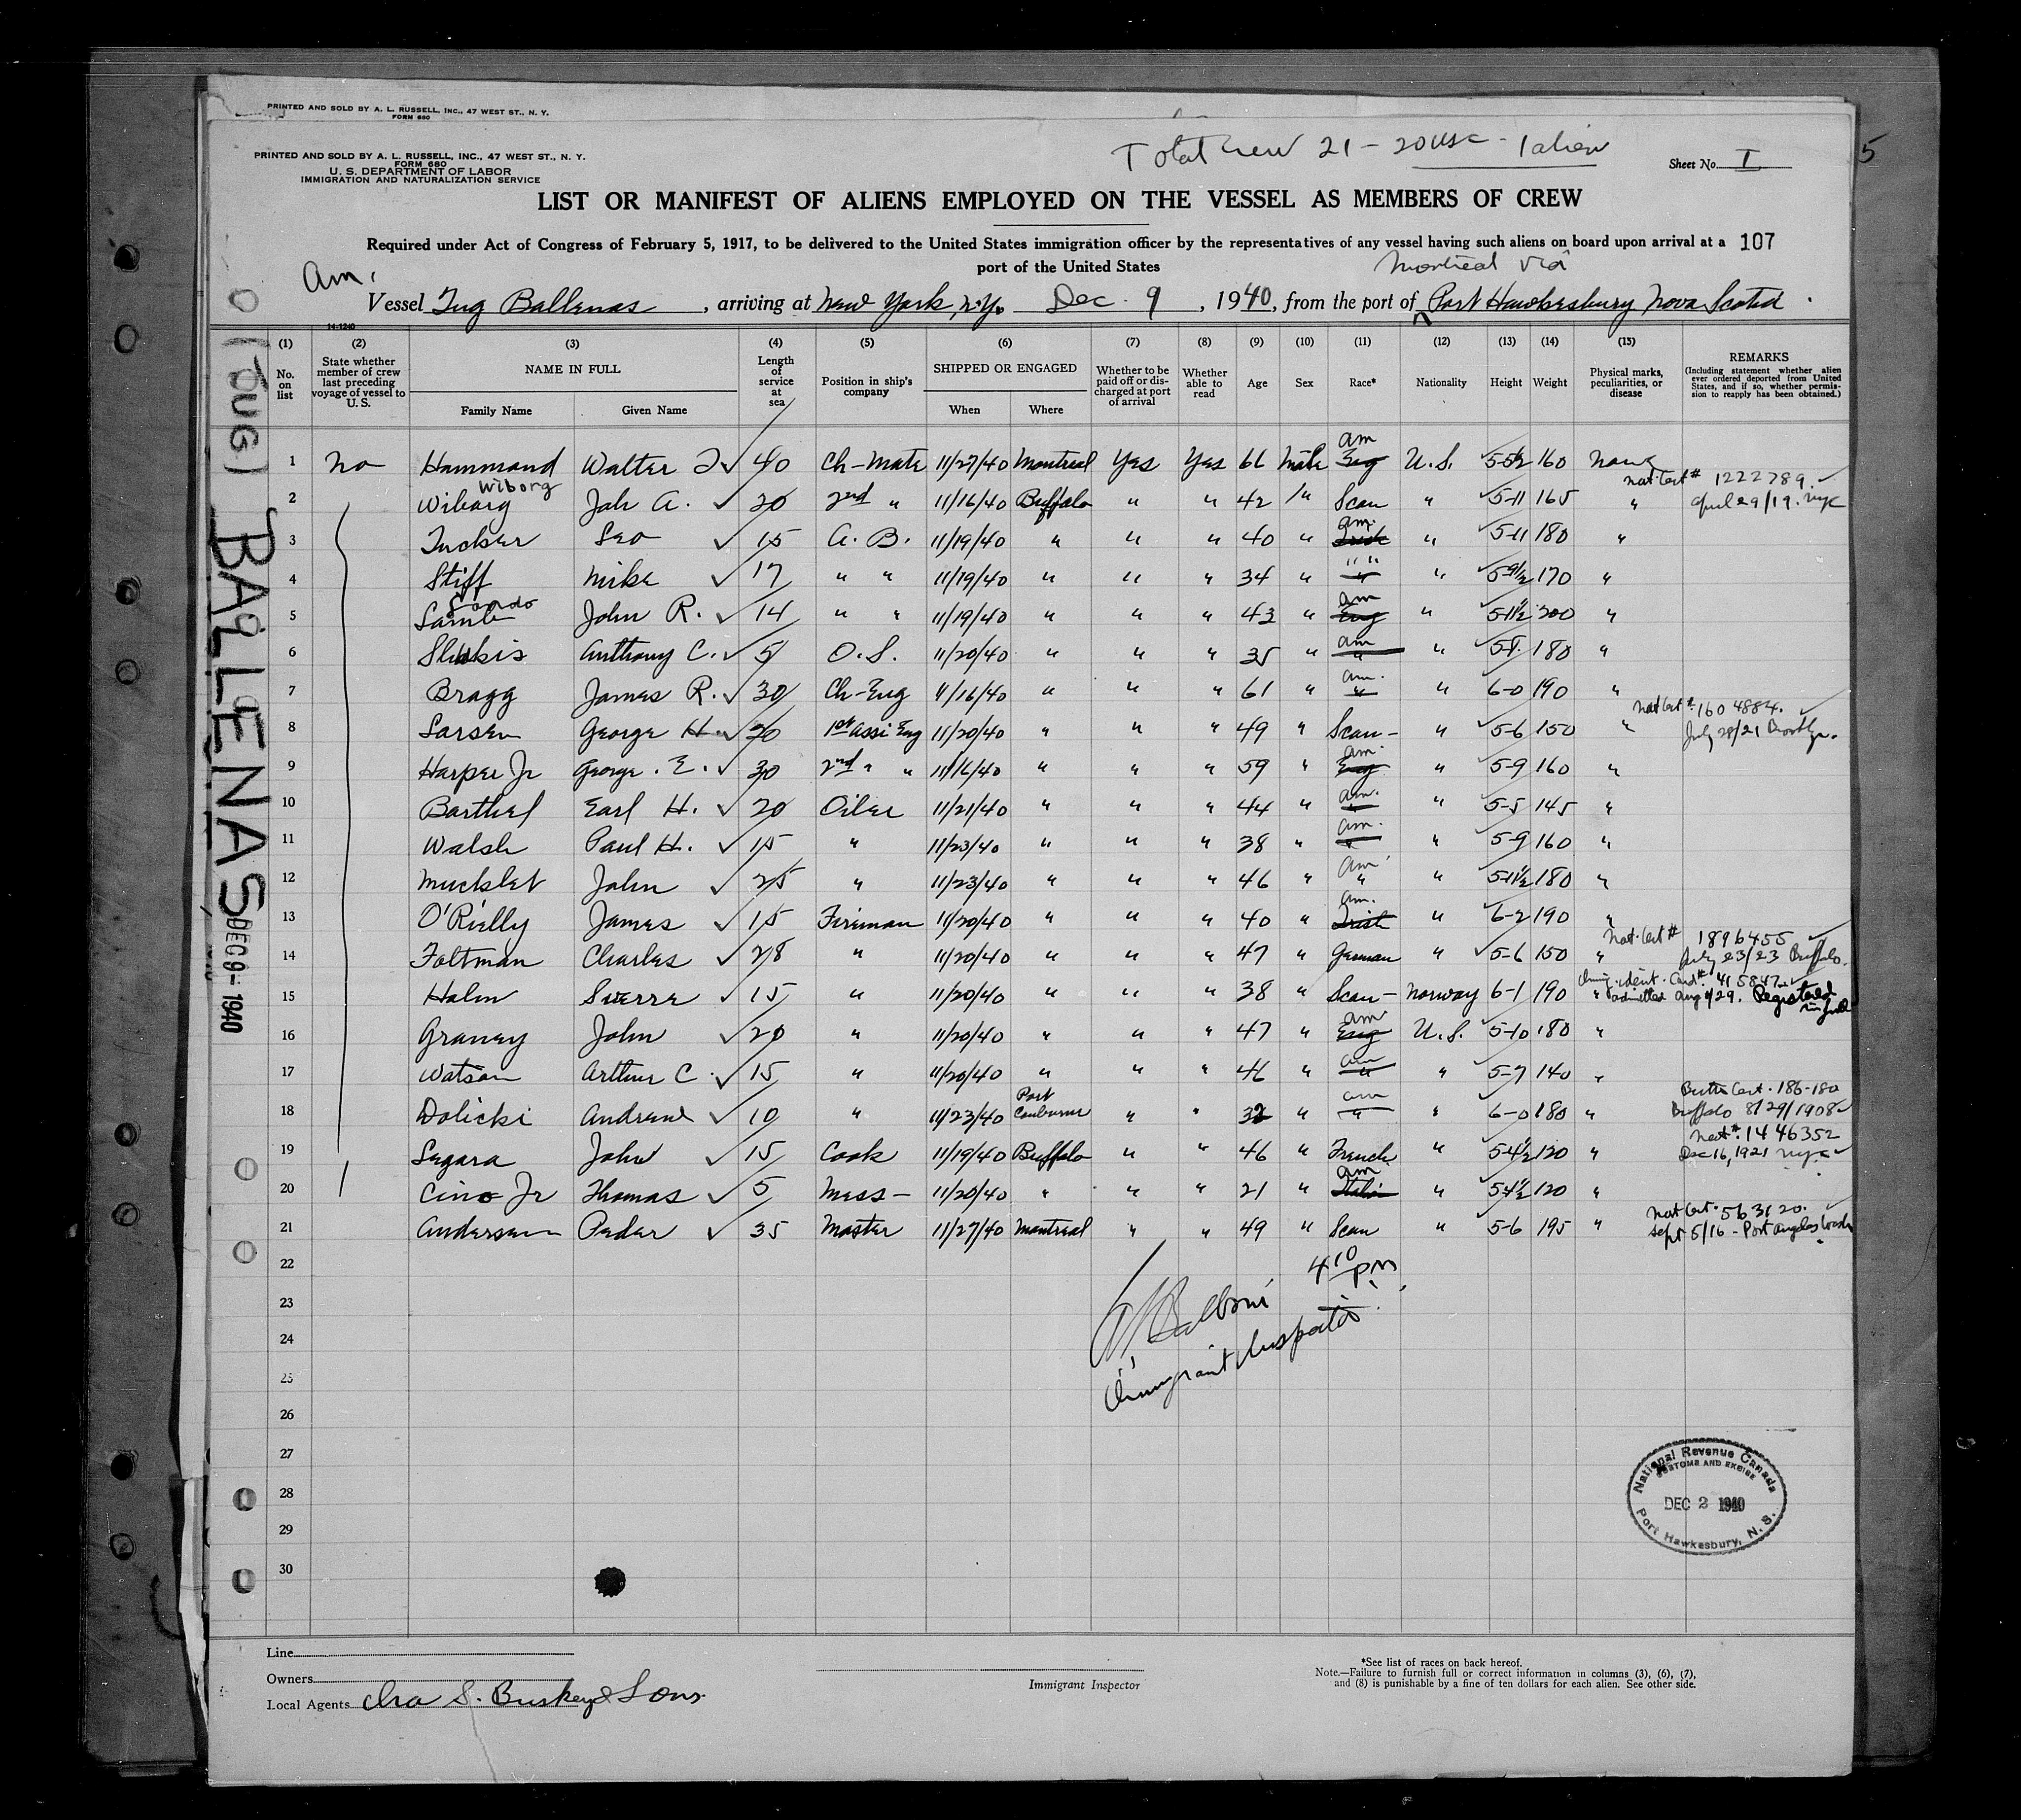 PRINTED AND SOLD BY A. L. RUSSELL, INC., 47 WEST ST., N. Y.
FORM 680
PRINTED AND SOLD BY A. L. RUSSELL, INC., 47 WEST ST., N. Y.
FORM 680
U. S. DEPARTMENT OF LABOR
IMMIGRATION AND NATURALIZATION SERVICE
Total crew 21 - 20 USC - 1 alien
Sheet No. I
5
LIST OR MANIFEST OF ALIENS EMPLOYED ON THE VESSEL AS MEMBERS OF CREW
Required under Act of Congress of February 5, 1917, to be delivered to the United States immigration officer by the representatives of any vessel having such aliens on board upon arrival at a 107
port of the United States
Am.
Montreal via
Vessel Tug Ballenas, arriving at New York, N.Y. Dec. 9, 1940, from the port of Port Hawkesbury Nova Scotia.
14-1240
(1) (2) (3) (4) (5) (6) (7) (8) (9) (10) (11) (12) (13) (14) (15)
No. on list
State whether member of crew last preceding voyage of vessel to U. S.
NAME IN FULL
Family Name Given Name
Length of service at sea
Position in ship's company
SHIPPED OR ENGAGED
When Where
Whether to be paid off or discharged at port of arrival
Whether able to read
Age Sex Race* Nationality Height Weight
Physical marks, peculiarities, or disease
REMARKS
(Including statement whether alien ever ordered deported from United States, and if so, whether permission to reapply has been obtained.)
1 no Hammond Walter J 40 Ch-Mate 11/27/40 Montreal Yes Yes 66 Male Am Eng U.S. 5-5½ 160 None
Wiborg
Nat. Cert # 1222789.
2 Wiborg A. 20 2nd " 11/16/40 Buffalo " " 42 " Scan " 5-11 165 " April 29/19. NYC
3 Tucker Leo 15 A. B. 11/19/40 " " " 40 " Am. Irish " 5-11 180 "
4 Stiff Mike 17 " " 11/19/40 " " " 34 " " " " 5-9½ 170 "
Sando
5 John R. 14 " " 11/19/40 " " " 43 " Am Eng " 5-11½ 200 "
6 Anthony C. 5 O. S. 11/20/40 " " " 35 " Am " " 5-8 180 "
7 Bragg James R. 30 Ch-Eng 11/16/40 " " " 61 " Am. " " 6-0 190 "
Nat Cert # 1604884.
8 Larsen George H. 20 1st Assi Eng 11/20/40 " " " 49 " Scan- " 5-6 150 " July 28/21 Brooklyn.
9 Harper Jr George. E. 30 2nd " " 11/16/40 " " " 59 " Am. Eng " 5-9 160 "
10 Barthel Earl H. 20 Oiler 11/21/40 " " " 44 " Am. " " 5-5 145 "
11 Walsh Paul H. 15 " 11/23/40 " " " 38 " Am. " " 5-9 160 "
12 Mucklet John 25 " 11/23/40 " " " 46 " Am. " " 5-11½ 180 "
13 O'Rielly James 15 Fireman 11/20/40 " " " 40 " Am. Irish " 6-2 190 "
Nat. Cert # 1896455
14 Foltman Charles 28 " 11/20/40 " " " 47 " German " 5-6 150 " July 23/23 Buffalo.
Immig. ident. Card # 415847
15 Holm Sverre 15 " 11/20/40 " " " 38 " Scan- Norway 6-1 190 " admitted Aug /29. Registered
16 Graney John 20 " 11/20/40 " " " 47 " Am Eng U.S. 5-10 180 "
17 Watson Arthur C 15 " 11/20/40 " " " 46 " Am " " 5-7 140 "
Birth Cert. 186-180
18 Dolicki Andrew 10 " 11/23/40 Port Conburne " " 32 " Am " " 6-0 180 " Buffalo 8/29/1908
Nat #. 1446352
19 Segara John 15 Cook 11/19/40 Buffalo " " 46 " French " 5-4½ 120 " Dec 16, 1921 NYC
20 Cino Jr Thomas 5 Mess- 11/20/40 " " " 21 " Am Italian " 5-4½ 120 "
Nat Cert. 563120.
21 Andersen Peder 35 Master 11/27/40 Montreal " " 49 " Scan " 5-6 195 " Sept 5/16 - Port Angeles Wash
22
23
24
25
26
27
28
29
30
4 10 PM
Immigrant Inspector
(TUG) BALLENAS
DEC 9 - 1940
National Revenue Canada
CUSTOMS AND EXCISE
DEC 2 1940
Port Hawkesbury, N. S.
Line
Owners
Local Agents Ira S. Bushey & Sons
Immigrant Inspector
*See list of races on back hereof.
Note.—Failure to furnish full or correct information in columns (3), (6), (7),
and (8) is punishable by a fine of ten dollars for each alien. See other side.